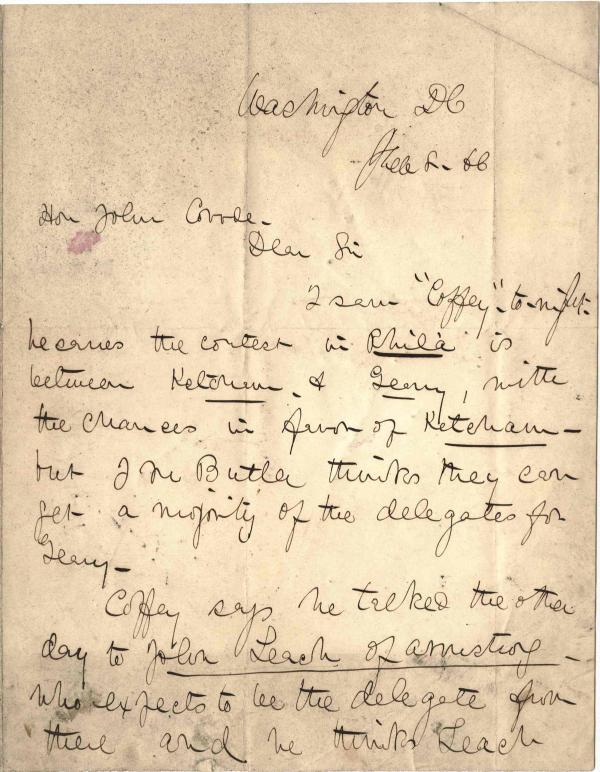 Washington DC
Feb 8. 66
Hon John Covode.
Dear Sir
I saw "Coffey" to-night.
he says the contest in Phila is
between Ketcham & Geary, with
the chances in favor of Ketcham –
but J M Butler thinks they can
get a majority of the delegates for
Geary –
Coffey says he talked the other
day to John Leach of armstrong –
who expects to be the delegate from
there and he thinks Leach